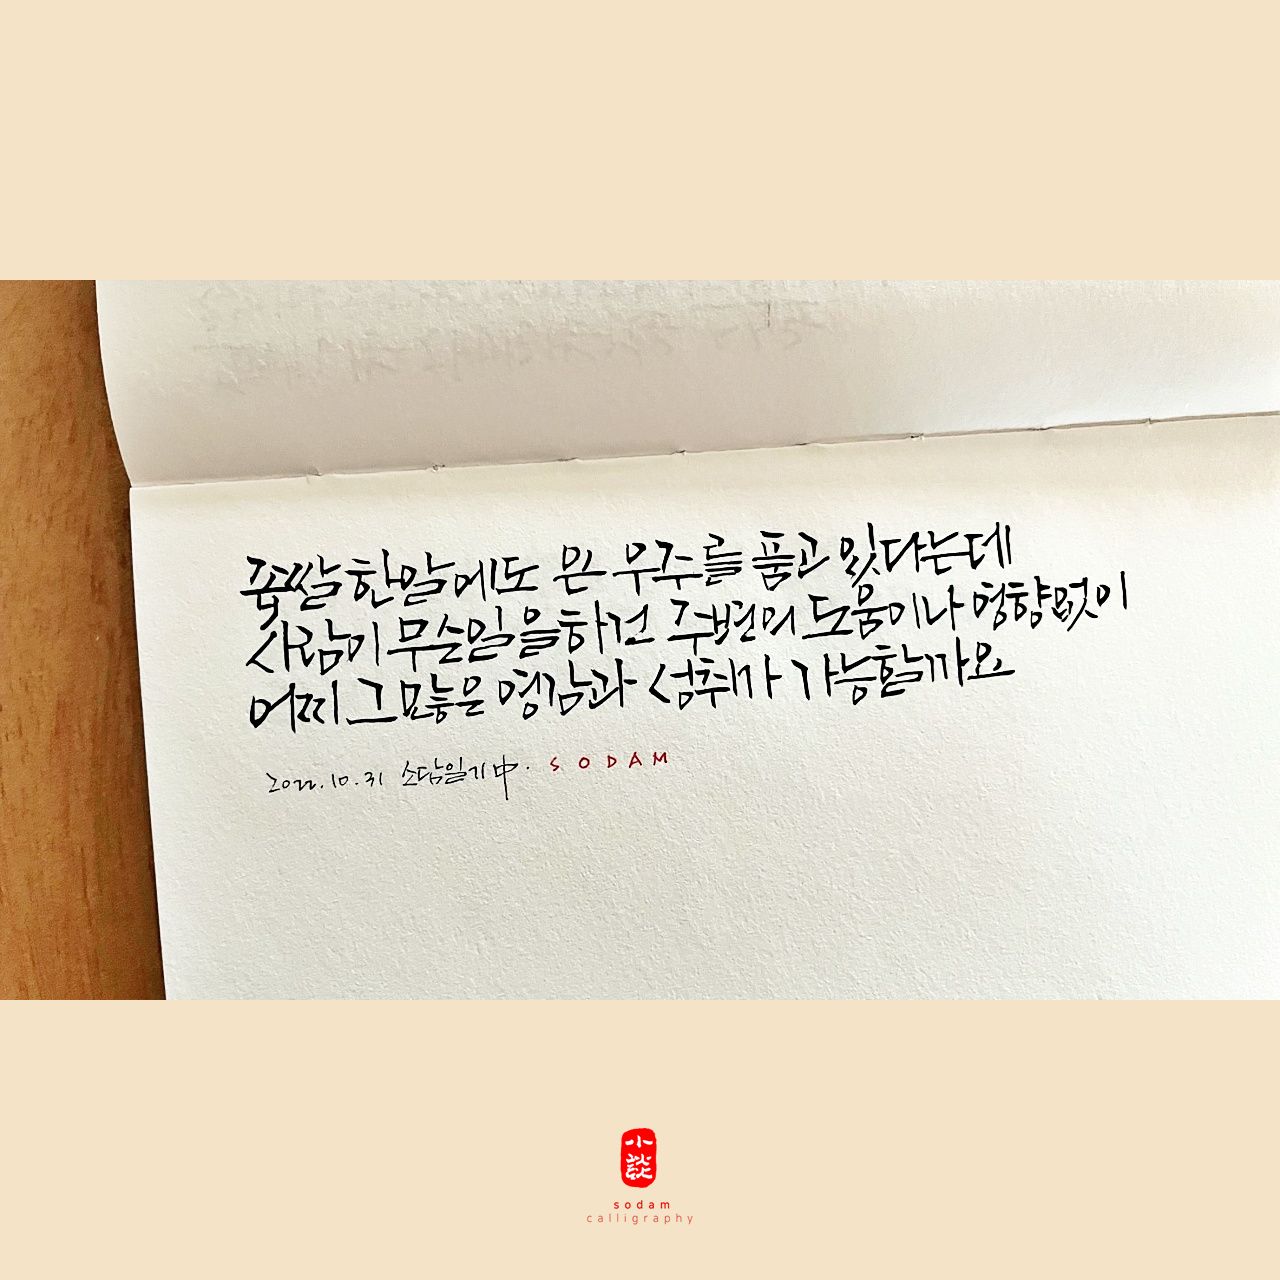 좁쌀 한알에도 온 우주를 품고 있다는데
사람이 무슨일을하건 주변의 도움이나 영향없이
어찌 그 많은 영감과 성취가 가능할까요
2022.10.31 소담일기中. SODAM
小談
sodam
calligraphy